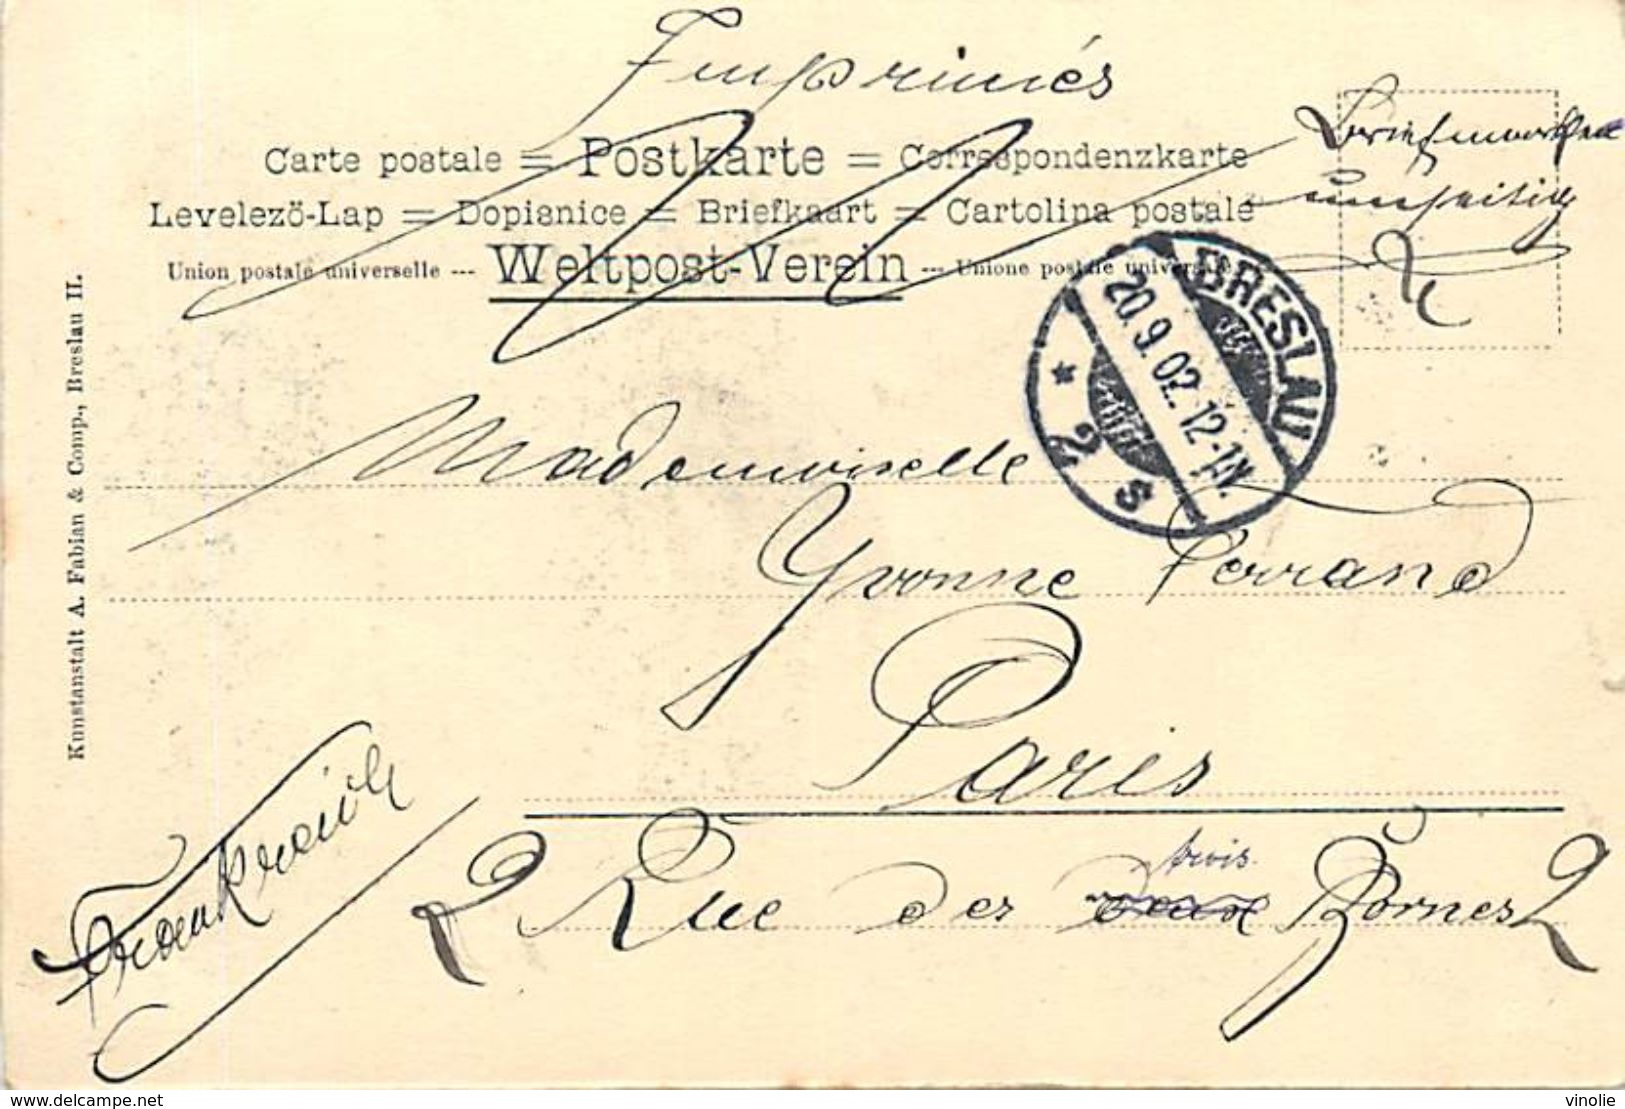 Imprimés
Carte postale = Postkarte = Correspondenzkarte
Levelező-Lap = Dopisnice = Briefkaart = Cartolina postale
Union postale universelle --- Weltpost-Verein --- Unione postale universale
Briefmarken
umseitig
BRESLAU
20.9.02.12-1N.
* 2 s
Kunstanstalt A. Fabian & Comp., Breslau II.
Mademoiselle
Yvonne Ferrand
Paris
trois
2 Rue des deux Bornes 2
Frankreich
www.delcampe.net
vinolie